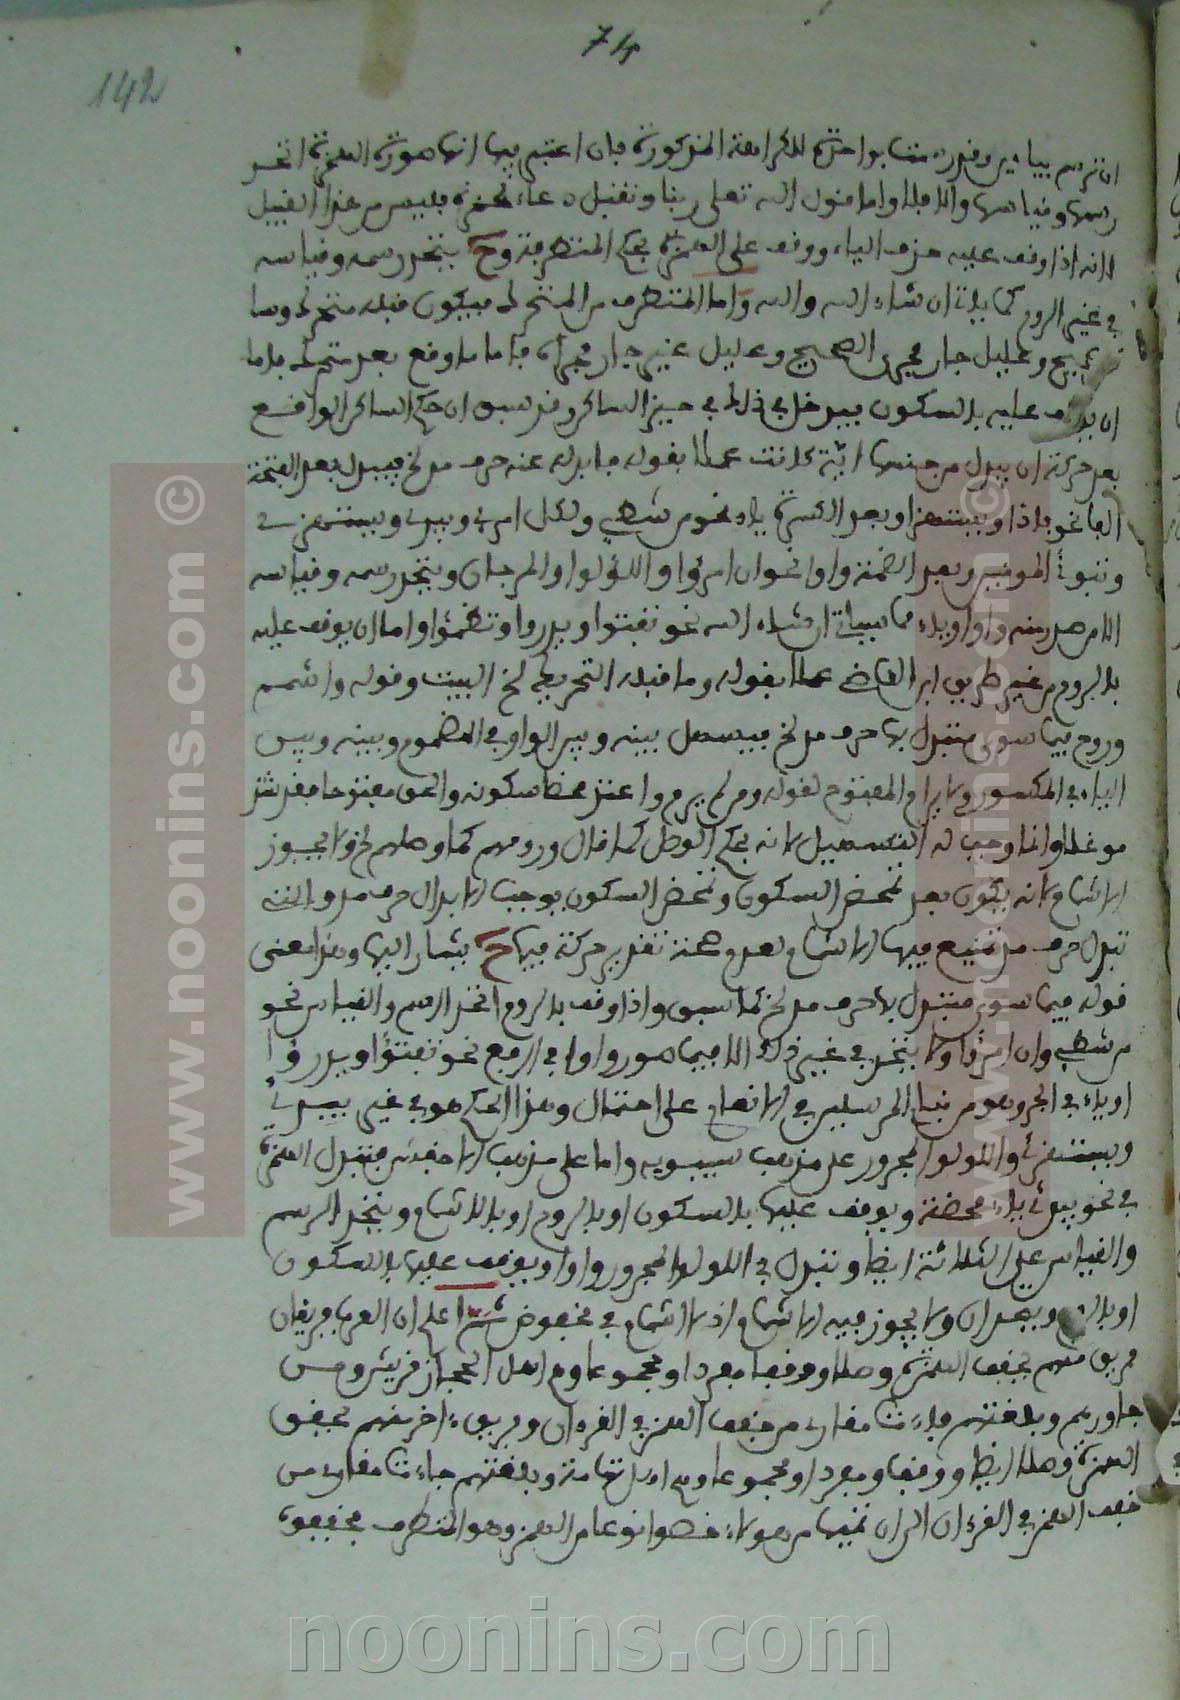 74
142
ان ترسم بياءين وقدرت بواحدة للكراهة المذكورة فان اعتبر فيها انها صورة الهمزة اتحد
رسمها وقياسها والا فلا واما قول الله تعلى ربنا وتقبل دعاء لحمزة فليس من هذا القبيل
لانه اذا وقف عليه حذف الياء ووقف على الهمزة بحكم المتطرفة وح يتحد رسمه وقياسه
في غير الروم كما ياتي ان شاء الله والله واما المتطرف من المتحرك فيكون قبله متحرك وسا
صحيح وعليل جار مجرى الصحيح وعليل غير جار مجراه فاما ما وقع بعد متحرك فاما
ان يوقف عليه بالسكون فيدخل في ذلك في حيز الساكن وقد سبق ان حكم الساكن الواقع
بعد حركة ان يبدل من جنسها اية كانت عملا بقوله فابدله عنه حرف مد لخ فيبدل بعد الفتحة
الفا نحو بدا ويستهزا وبعد الكسرة ياء نحو من شطي ولكل امرئ ويبدئ ويستهزئ
وتبوئ المومنين وبعد الضمة واوا نحو ان امرؤا واللؤلؤ والمرجان ويتحد رسمه وقياسه
الا من صدر منه واوا وياء مما سياتي ان شاء الله نحو تفتؤا ويدرؤا وتظمؤا واما ان يوقف عليه
بالروم من غير طريق ابن القاضي عملا بقوله وما قبله التحريك لخ البيت وقوله واشمم
وروم فيما سوى متبدل بها حرف مد لخ فيسهل بينه وبين الواو في المضموم وبينه وبين
الياء في المكسور ولا يرام المفتوح لقوله ومن لم يرم واعتد محضا سكونه والحق مفتوحا فقد شذ
موغلا وانما وجب له التسهيل لانه بحكم الوصل كما قال ورومهم كما وصلهم لخ ولا يجوز
الاشمام لانه يكون بعد تمحض السكون وتمحض السكون يوجب الابدال حرف مد والتي
تبدل حرف مد يمتنع فيها الاشمام لعدم صحة تقدير حركة فيها ح يشار اليها وهذا معنى
قوله فيما سوى متبدل بها حرف مد لخ كما سبق واذا وقف بالروم اتحد الرسم والقياس نحو
من شطي وان امرؤا ولا يتحد في غير ذلك الا فيما صور واوا في الرفع نحو تفتؤا ويدرؤا
او ياء في الجر وهو من نبإي المرسلين في الانعام على احتمال وهذا الحكم هو في غير يبدئ
ويستهزئ واللولو المجرور على مذهب سيبويه واما على مذهب الاخفش فتبدل الهمزة
في نحو يبدئ ياء محضة ويوقف عليها بالسكون او بالروم او بالاشمام ويتحد الرسم
والقياس على الثلاثة ايضا وتبدل في اللولو المجرور واوا ويوقف عليها بالسكون
او بالروم ويتحدان ولا يجوز فيه الاشمام اذ لا اشمام في مخفوض اعلم ان العرب فريقان
فريق منهم يخفف الهمزة وصلا ووقفا مفردا ومجموعا وهم اهل الحجاز قريش ومن
جاورهم وبلغتهم جاءت مقارئ من خفف الهمز في القرءان وفريق ءاخر منهم يحقق
الهمزة وصلا ايضا ووقفا ومفردا ومجموعا وهم اهل تهامة وبلغتهم جاءت مقارئ من
خفف الهمز في القرءان الا ان تميما من هولاء خصوا نوعا من الهمز وهو المتطرف فخففوه
www.noonins.com ©
www.noonins.com ©
noonins.com